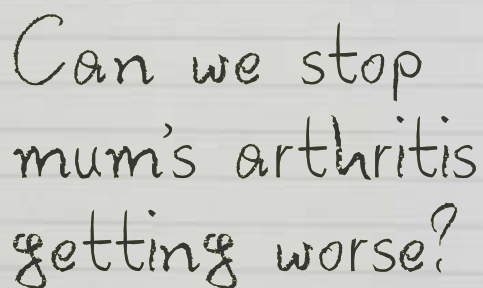 Can we stop
mum's arthritis
getting worse?